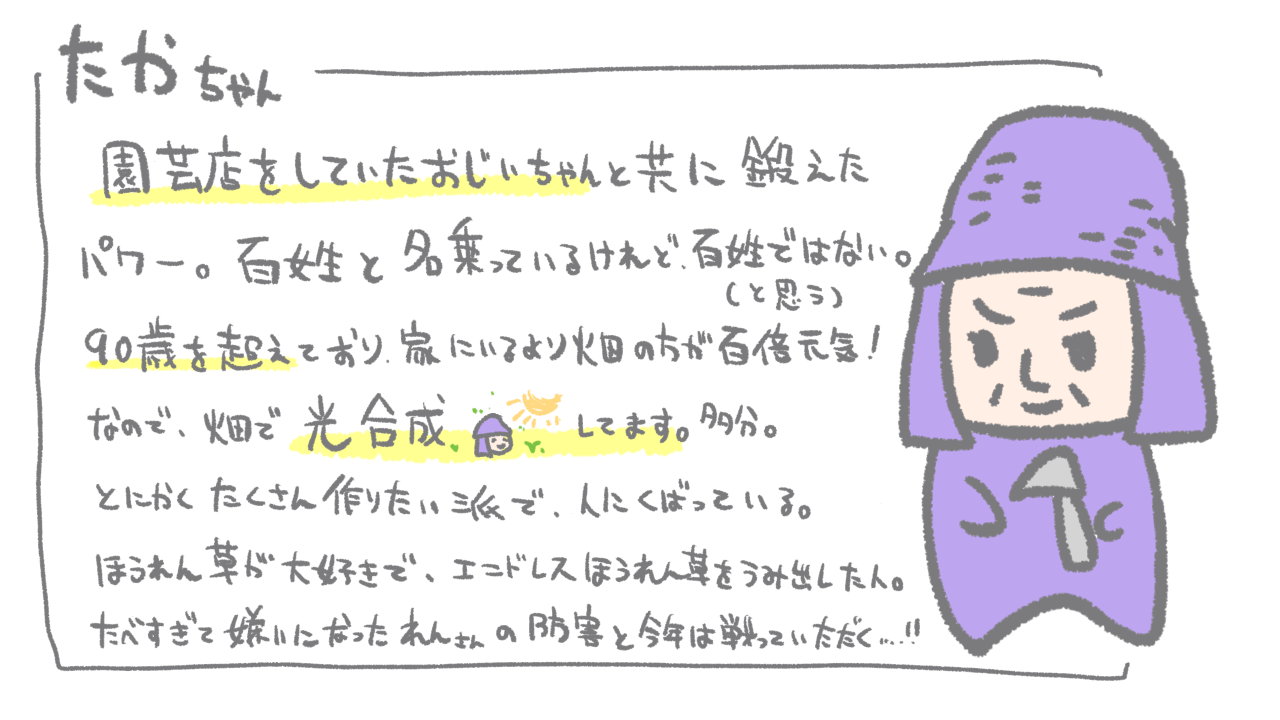 たかちゃん
園芸店をしていたおじいちゃんと共に鍛えた
パワー。百姓と名乗っているけれど、百姓ではない。
(と思う)
90歳を超えており、家にいるより畑の方が百倍元気!
なので、畑で光合成してます。多分。
とにかくたくさん作りたい派で、人にくばっている。
ほうれん草が大好きで、エンドレスほうれん草をうみ出した人。
たべすぎて嫌いになったれんさんの防害と今年は戦っていただく...!!